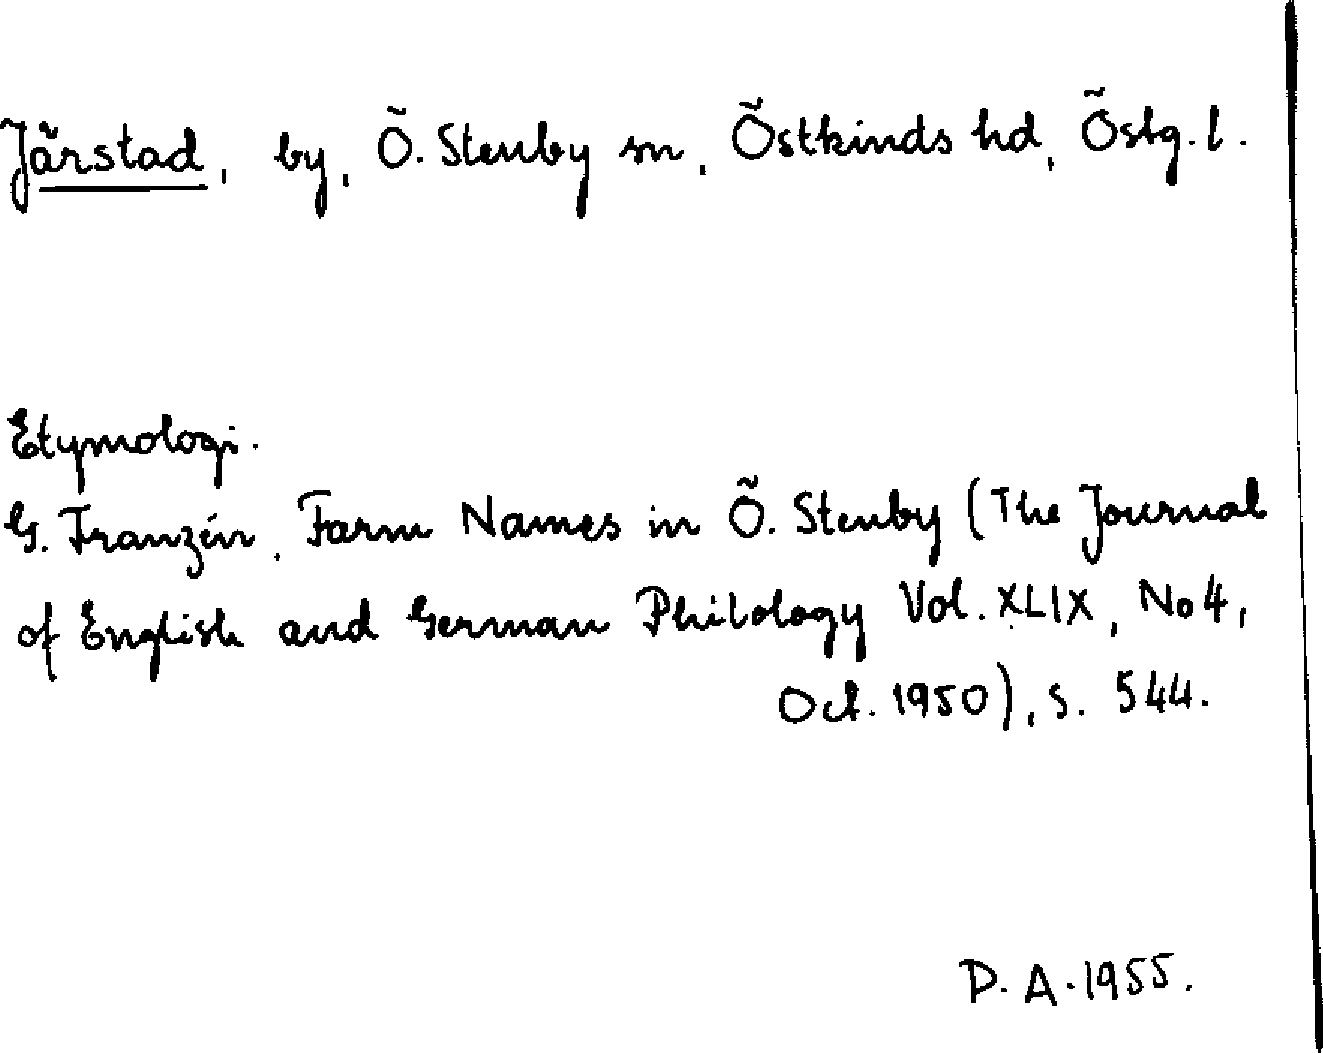 Järstad, by, Ö. Stenby sn, Östkinds hd, Östg. l.
Etymologi.
G. Franzén, Farm Names in Ö. Stenby (The Journal
of English and German Philology Vol. XLIX, No 4,
Oct. 1950), s. 544.
P. A. 1955.